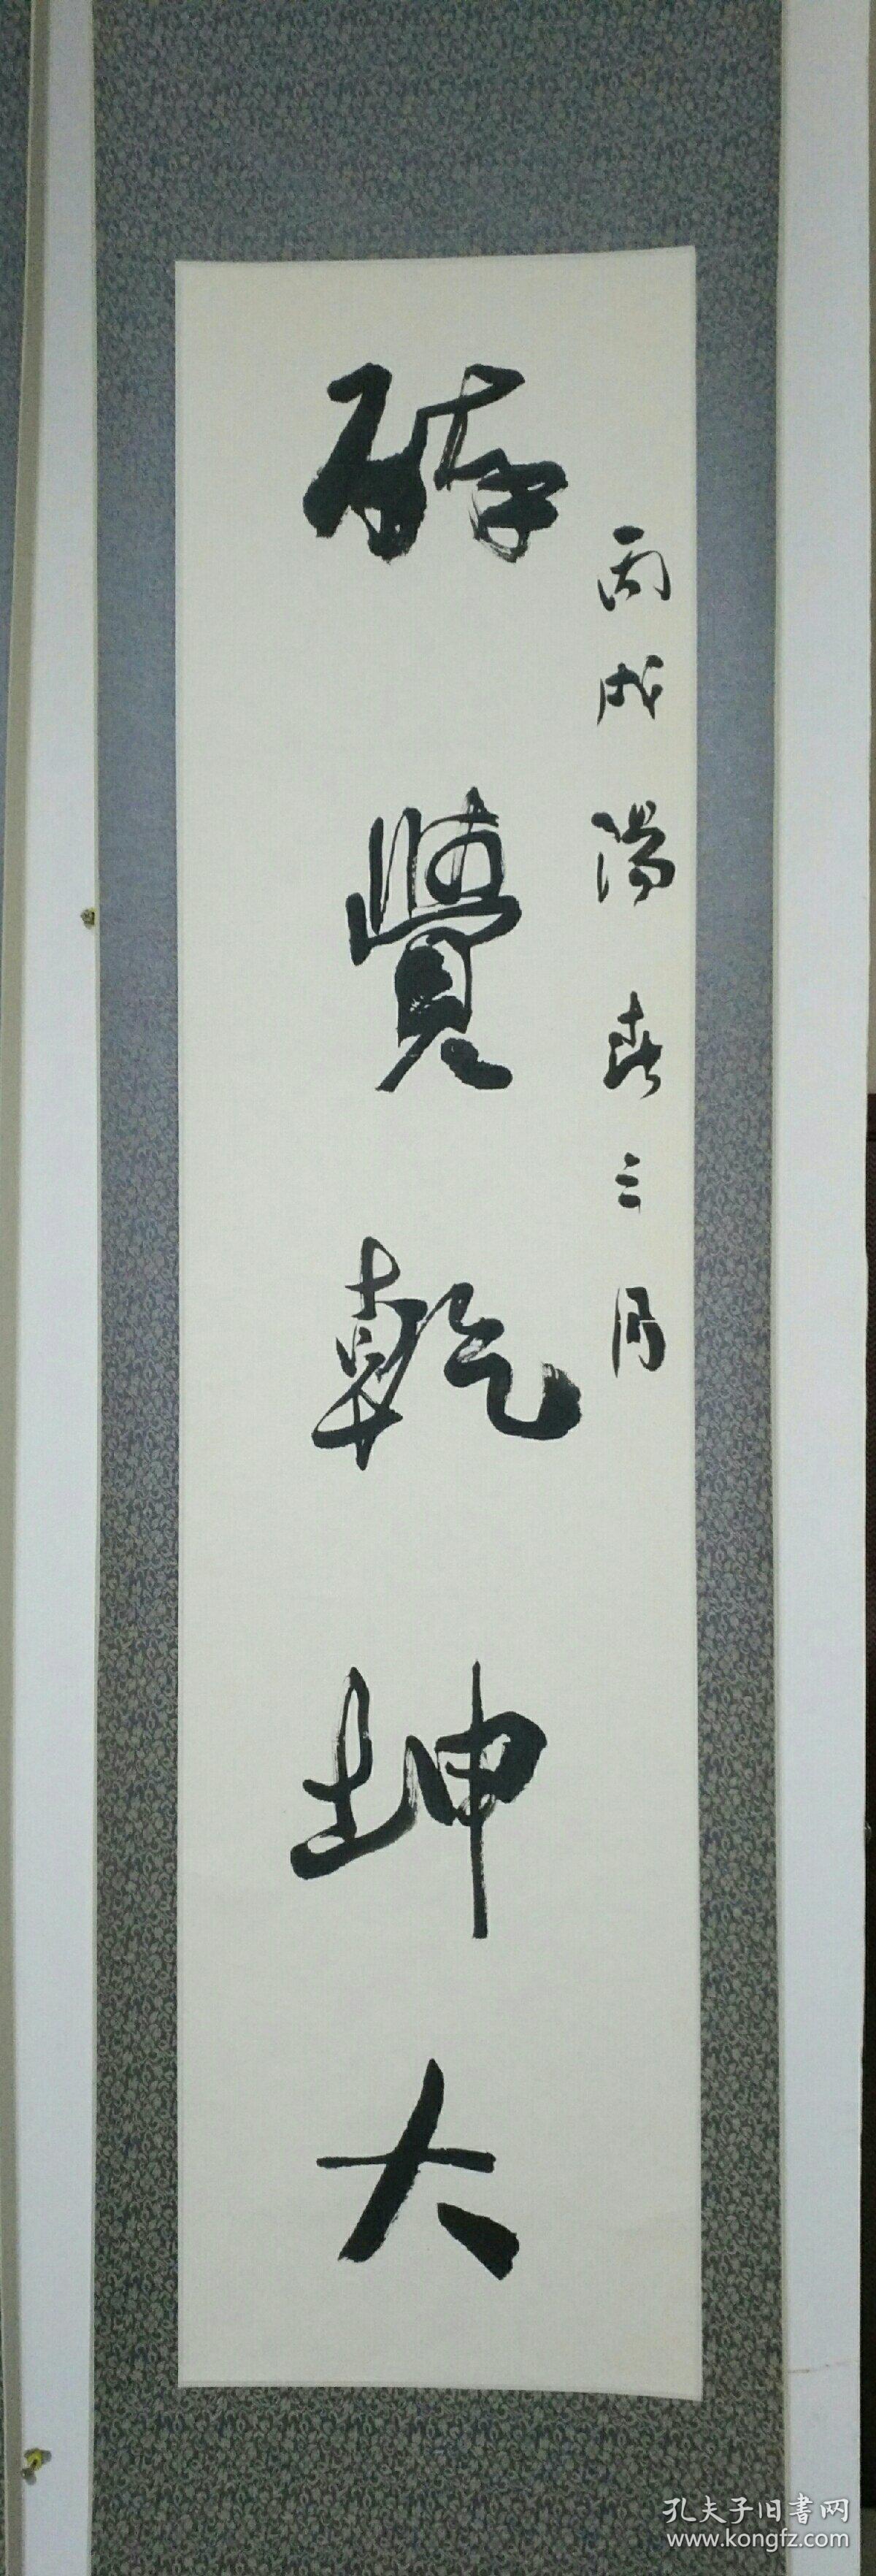 丙戌陽春三月
醉覺乾坤大
孔夫子旧书网
www.kongfz.com